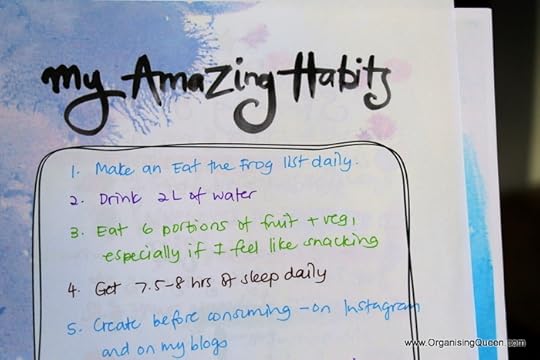 My Amazing Habits
1. Make an Eat the Frog list daily.
2. Drink 2L of water
3. Eat 6 portions of fruit + veg,
especially if I feel like snacking
4. Get 7.5-8 hrs of sleep daily
5. Create before consuming - on Instagram
and on my blogs
www.OrganisingQueen.com